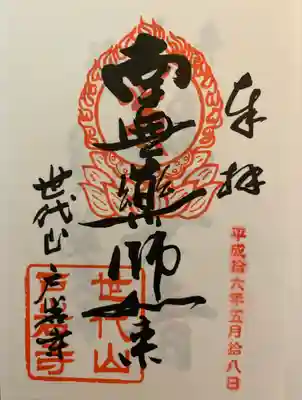 奉拝
平成拾六年五月拾八日
南無薬師如来
世代山
世代山